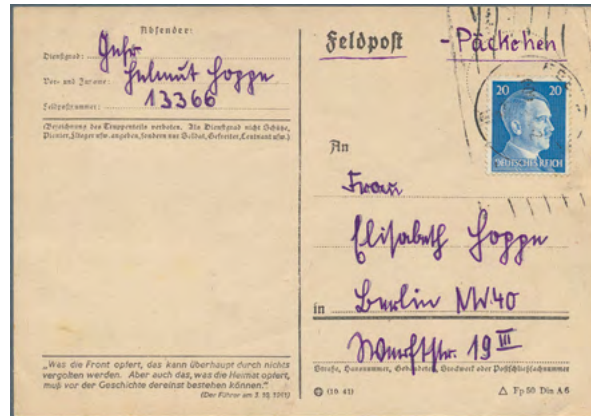 Absender:
Dienstgrad: Gefr
Vor- und Zuname: Helmut Hoppe
Feldpostnummer: 13366
(Bezeichnung des Truppenteils verboten. Als Dienstgrad nicht Schütze,
Pionier, Flieger usw. angeben, sondern nur Soldat, Gefreiter, Leutnant usw.)
„Was die Front opfert, das kann überhaupt durch nichts
vergolten werden. Aber auch das, was die Heimat opfert,
muß vor der Geschichte dereinst bestehen können.“
(Der Führer am 3. 10. 1941)
Feldpost - Päckchen
20 20
DEUTSCHES REICH
An
Frau
Elisabeth Hoppe
in Berlin NW 40
Werftstr. 19 III
Straße, Hausnummer, Gebäudeteil, Stockwerk oder Postschließfachnummer
Fp 50 Din A 6